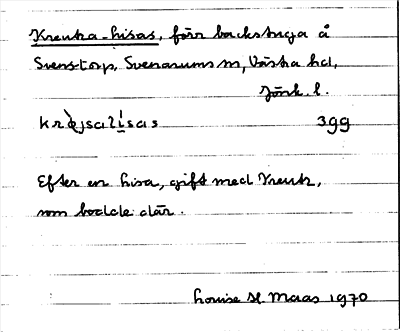 Kreutza-Lisas, förr backstuga å
Svenstorp, Svenarums sn, Västra hd,
Jönk. l.
399
Efter en Lisa, gift med Kreutz,
som bodde där.
Louise H. Maas 1970